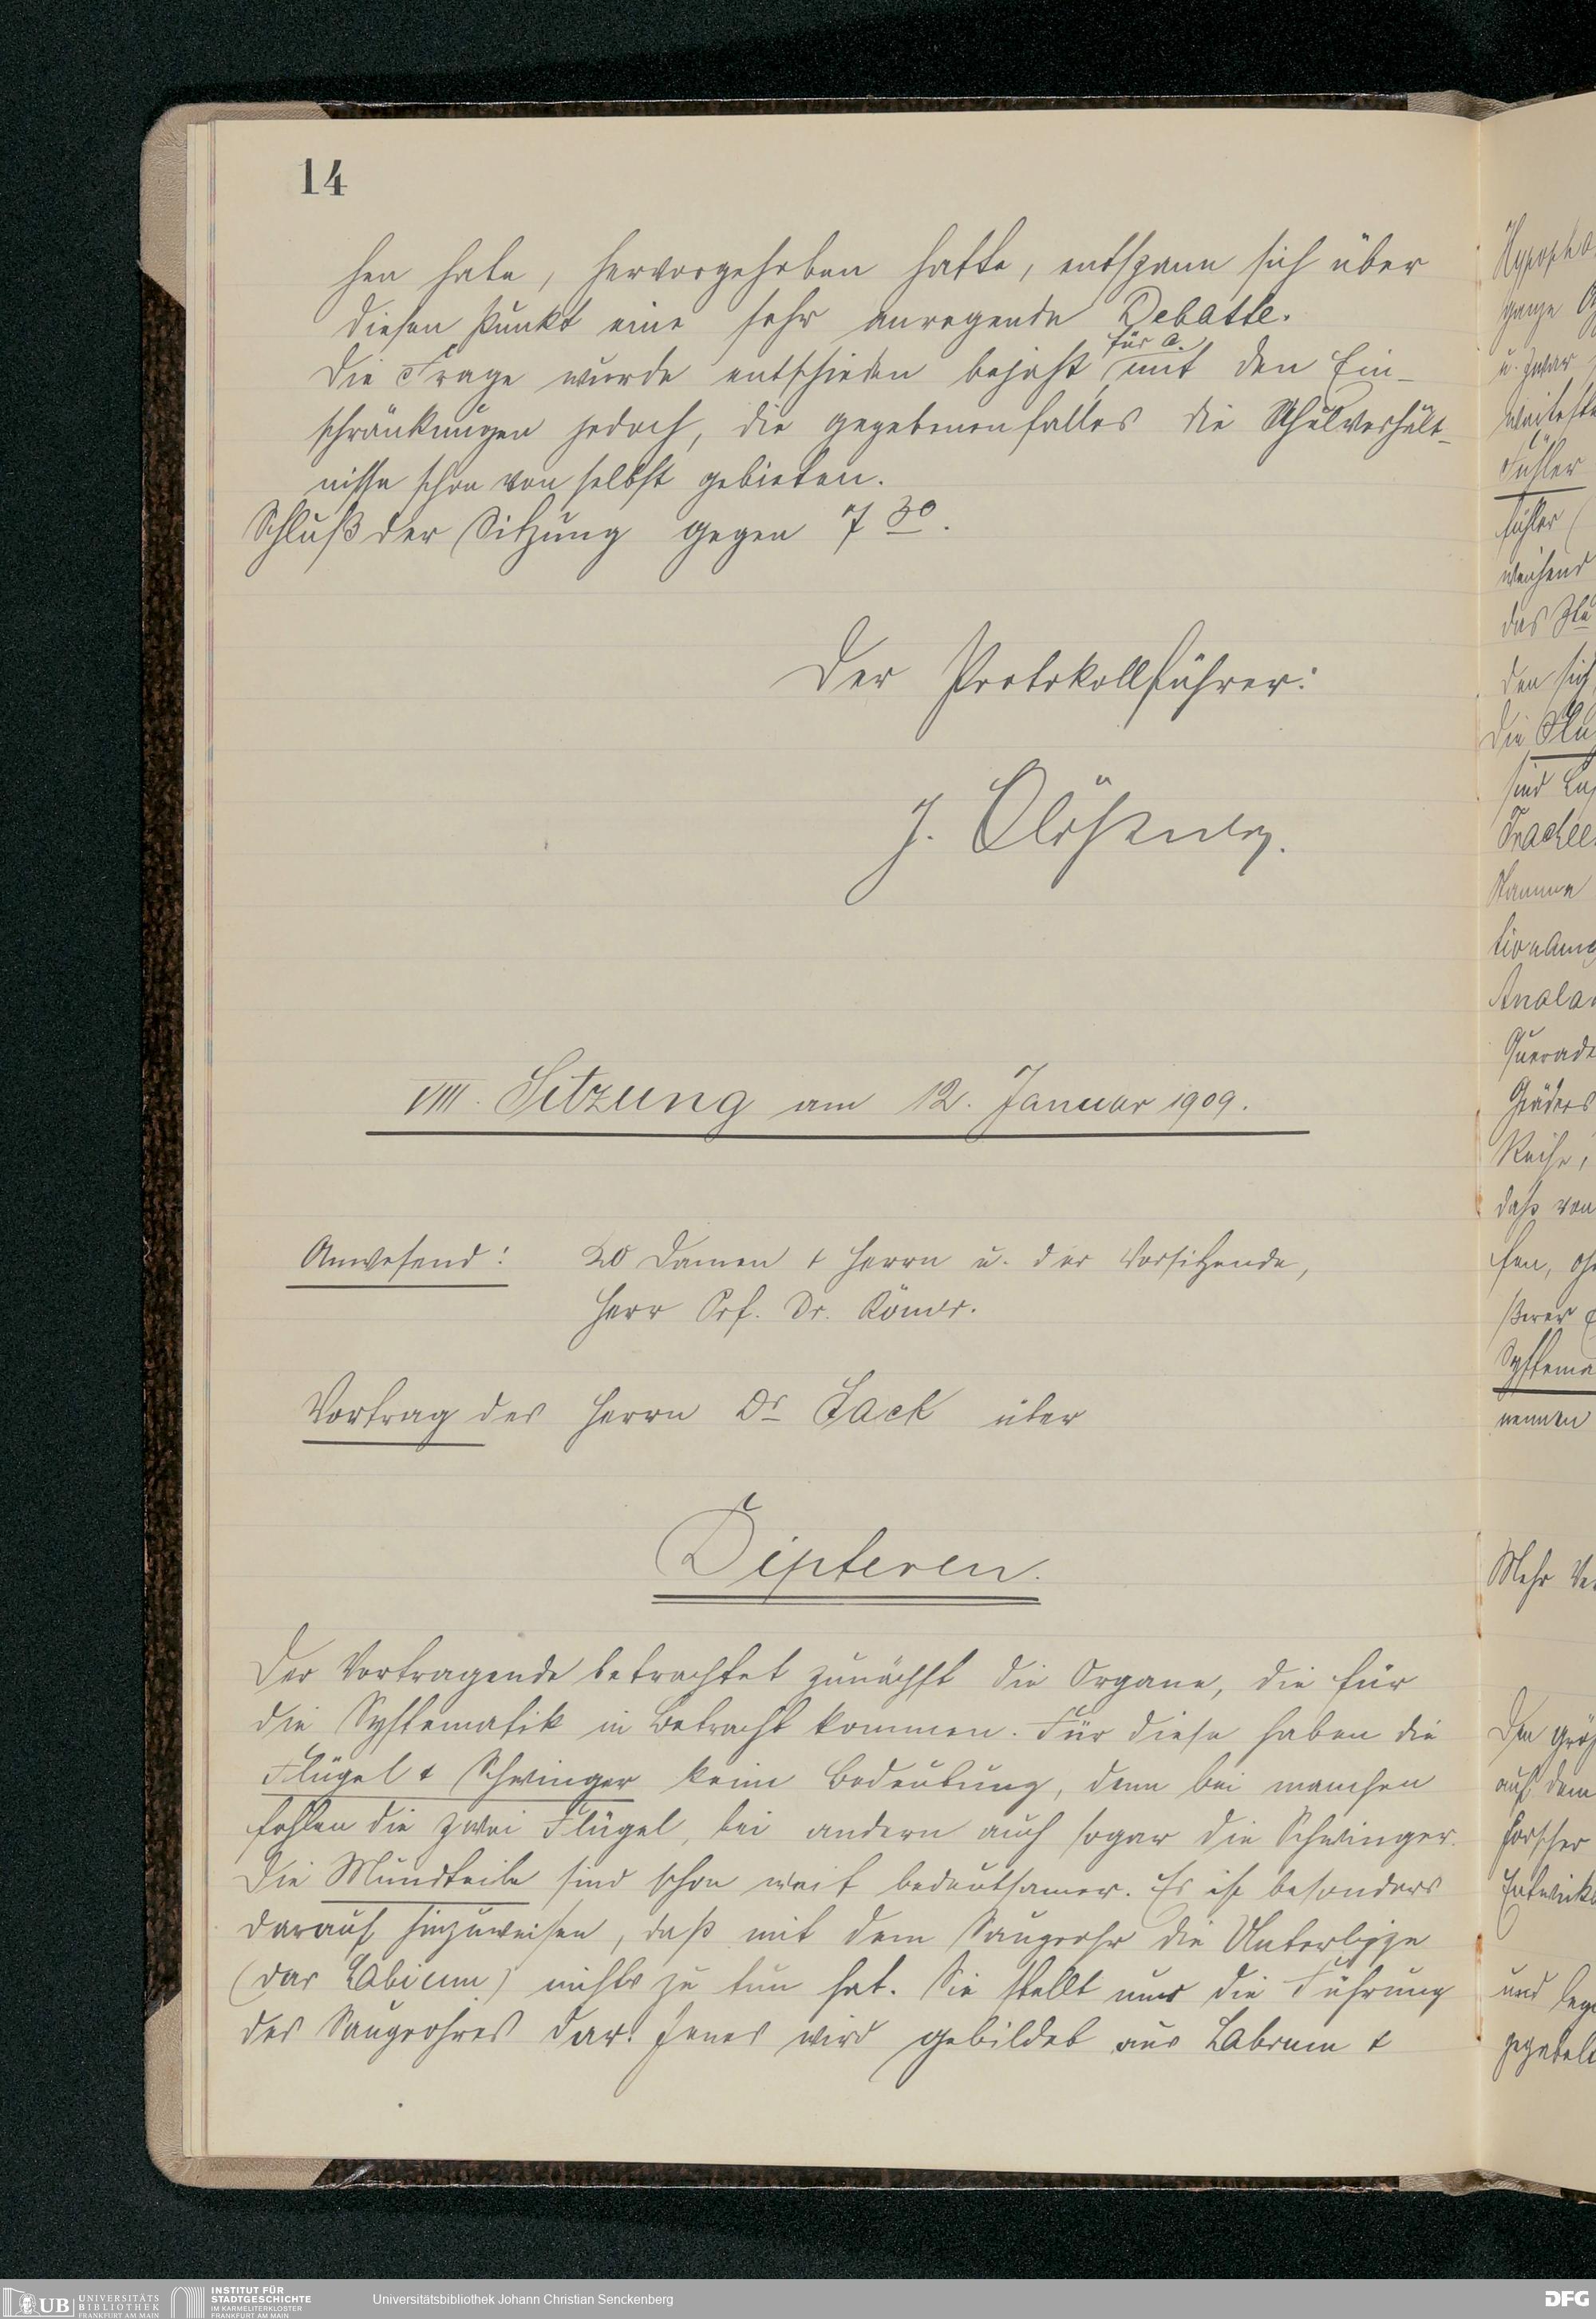 14
hen habe, hervorgehoben hatte, entspann sich über
diesen Punkt eine sehr anregende Debatte.
für a.
Die Frage wurde entschieden bejaht, mit den Ein-
schränkungen jedoch, die gegebenenfalles die Schulverhält-
nisse schon von selbst gebieten.
Schluß der Sitzung gegen 7 30.
Der Protokollführer:
J.
VIII. Sitzung am 12. Januar 1909.
Anwesend: 20 Damen & Herrn u. der Vorsitzende,
Herr Prf. Dr. Römer.
Vortrag des Herrn Dr Sack über
Dipteren.
Der Vortragende betrachtet zunächst die Organe, die für
die Systematik in Betracht kommen. Für diese haben die
Flügel & Schwinger keine Bedeutung, denn bei manchen
fehlen die zwei Flügel, bei andern auch sogar die Schwinger.
Die Mundteile sind schon weit bedeutsamer. Es ist besonders
darauf hinzuweisen, daß mit dem Saugrohr die Unterlippe
(das Labium) nichts zu tun hat. Sie stellt nur die Führung
des Saugrohres dar. Jenes wird gebildet aus Labrum &
ganze
u. zwar
Fühler
fühler (
das
den sich
Die
sind
Reihe,
daß von
nennen
Mehr
auf dem
Forscher
und
UB UNIVERSITÄTS
BIBLIOTHEK
FRANKFURT AM MAIN
INSTITUT FÜR
STADTGESCHICHTE
IM KARMELITERKLOSTER
FRANKFURT AM MAIN
Universitätsbibliothek Johann Christian Senckenberg
DFG